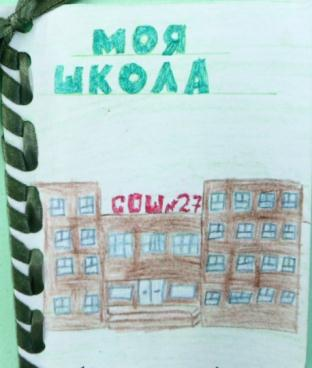 МОЯ
ШКОЛА
СОШ№27